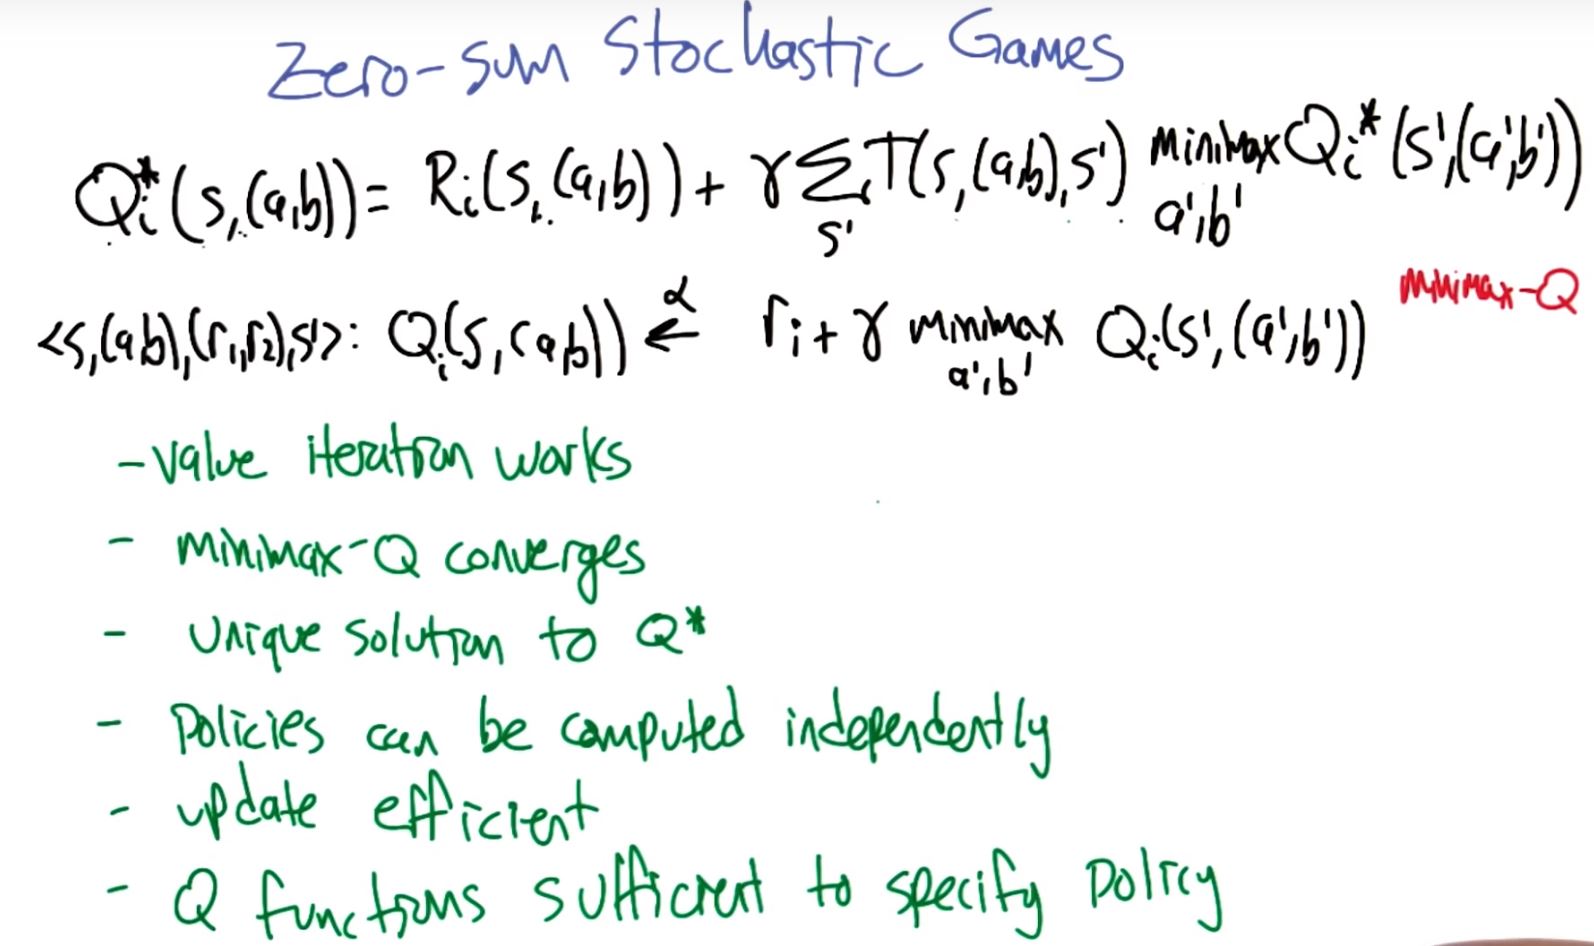 Zero-sum Stochastic Games
Qi*(s,(a,b)) = Ri(s,(a,b)) + γ Σ T(s,(a,b),s') minimax Qi*(s',(a',b'))
s' a',b'
minimax-Q
<s,(a,b),(r1,r2),s'>: Qi(s,(a,b)) ←α ri + γ minimax Qi(s',(a',b'))
a',b'
- value iteration works
- minimax-Q converges
- Unique solution to Q*
- Policies can be computed independently
- update efficient
- Q functions sufficient to specify policy